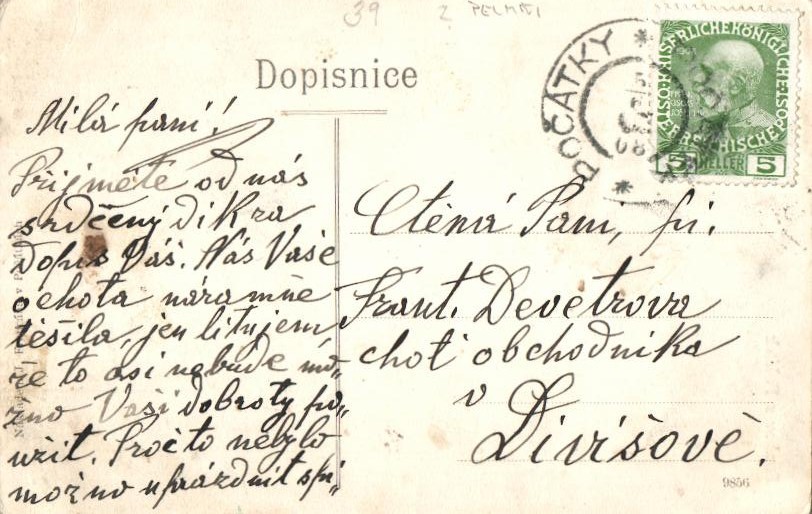 39 z PELHŘI
Dopisnice
POČÁTKY
KAISERLICHE KÖNIGLICHE ÖSTERREICHISCHE
5 HELLER 5
Milá paní!
Přijměte od nás
srdčený dík za
dopis Váš. Nás Vaše
ochota náramně
těšila, jen litujem
že to asi nebude mo„
žno Vaší dobroty po„
užit. Proč to nebylo
možno uprázdnit spí„
Ctěná Paní, pí.
Frant. Devetrova
choť obchodníka
v
Divišově.
9856